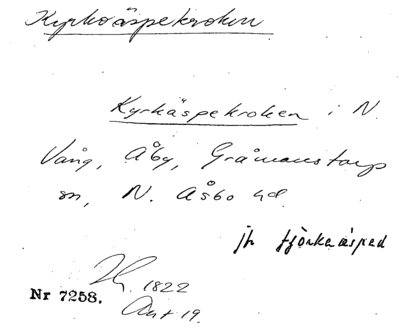 Kyrkoäspekroken
Kyrkäspekroken i N.
Vång, Åby, Gråmanstorps
sn, N. Åsbo hd.
jfr fjörkaäsped
1822
Nr 7258.
Akt 19.